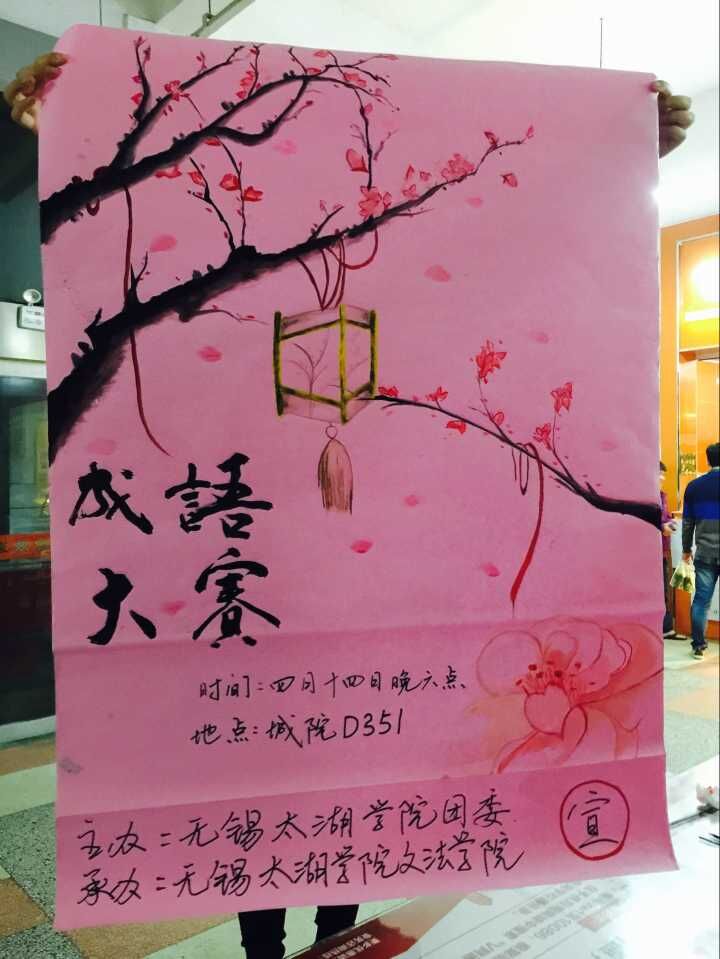 成語
大賽
时间：四月十四日晚六点
地点：城院D351
主办：无锡太湖学院团委
承办：无锡太湖学院文法学院
宣